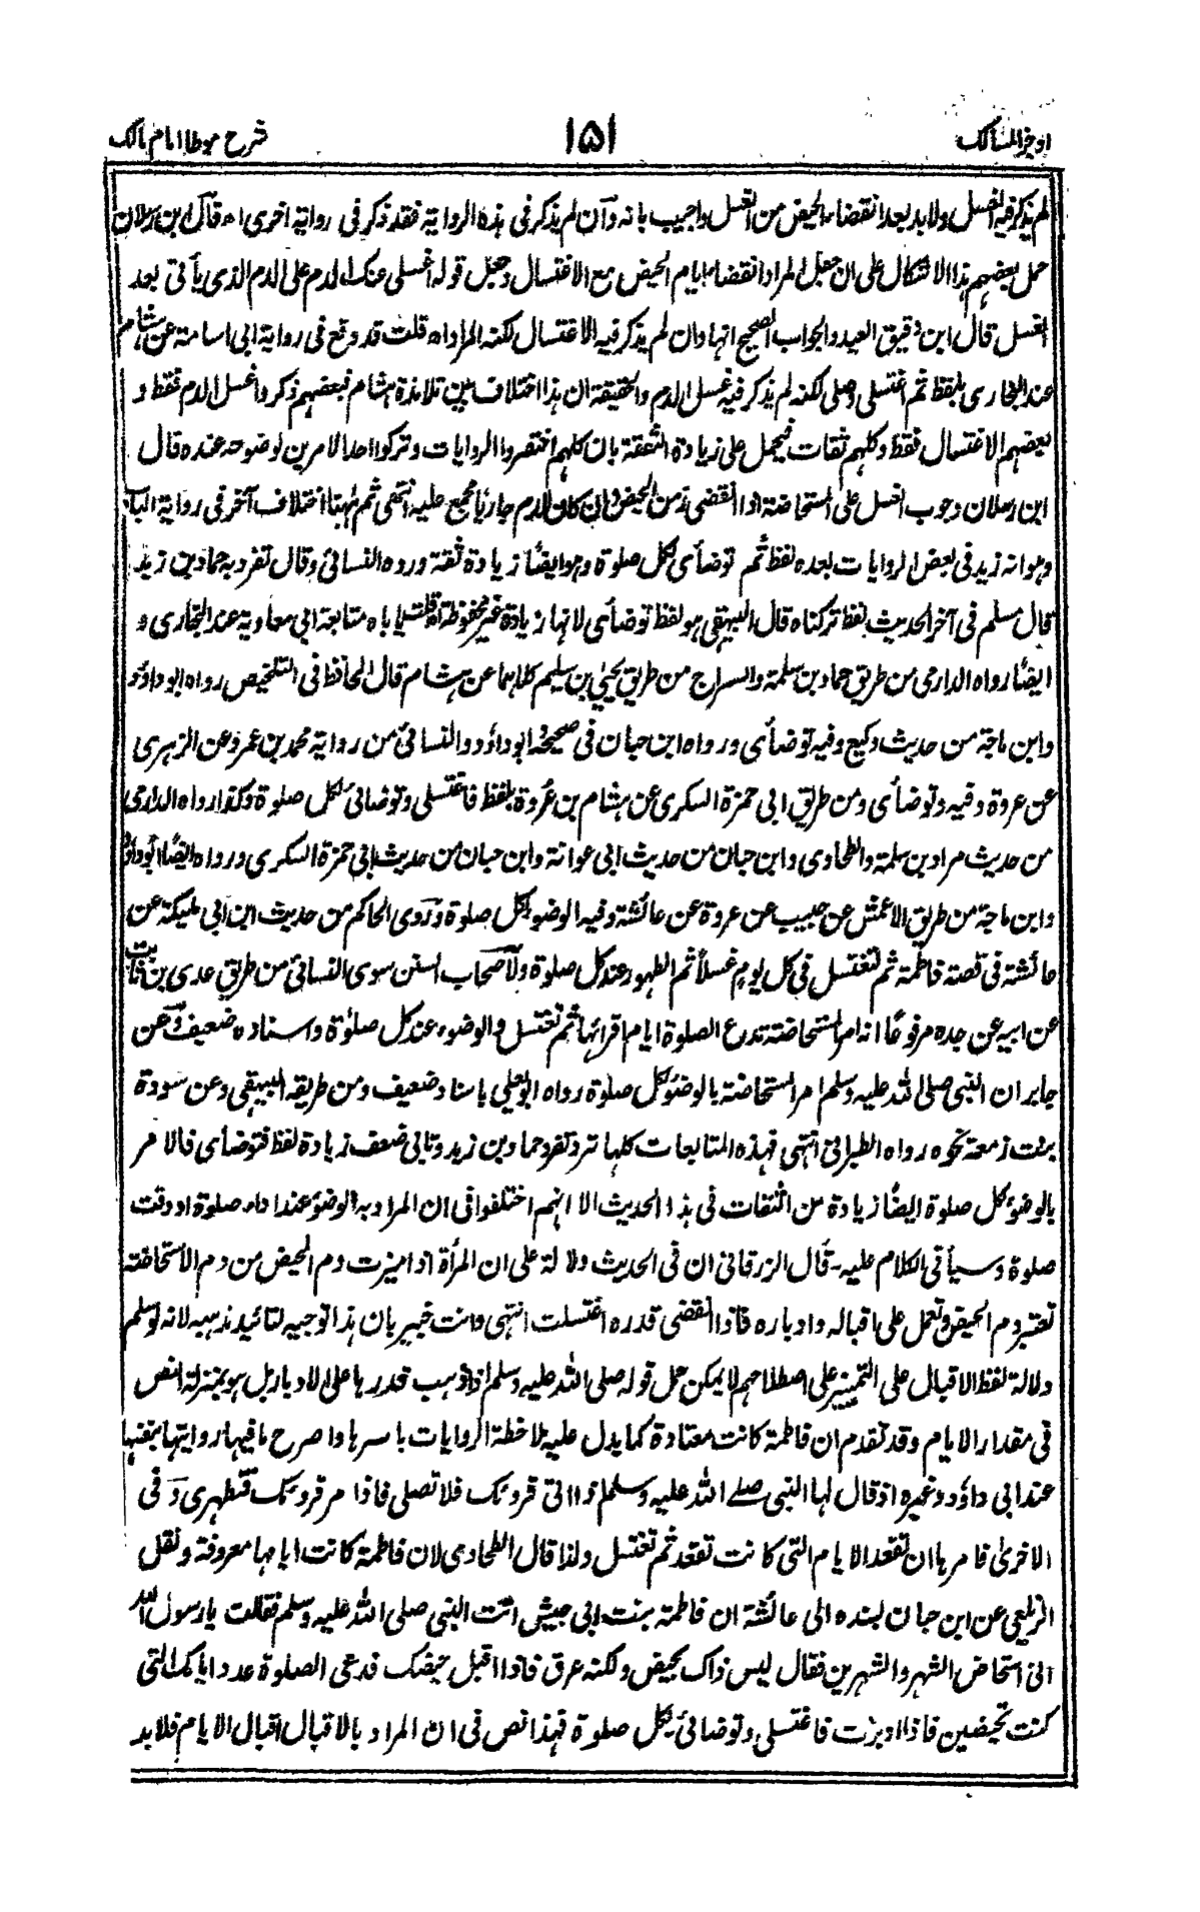 اوجز المسالك ١٥١ شرح موطا امام مالك
لم يذكر فيه الغسل ولابد بعد انقضاء الحيض من الغسل واجيب بانه وان لم يذكر فى هذه الرواية فقد ذكر فى رواية اخرى اه قال ابن رسلان
حمل بعضهم هذا الاشكال على ان جعل المراد انقضاء ايام الحيض مع الاغتسال وجعل قوله اغسلى عنك الدم على الدم الذى يأتى بعد
الغسل قال ابن دقيق العيد والجواب الصحيح انها وان لم يذكر فيه الاغتسال لكنه المراد اه قلت قد وقع فى رواية ابى اسامة عن هشام
عند البخارى بلفظ ثم اغتسلى وصلى لكنه لم يذكر فيه غسل الدم والحقيقة ان هذا اختلاف بين تلامذة هشام فبعضهم ذكر واغسل الدم فقط و
بعضهم الاغتسال فقط وكلهم ثقات فيحمل على زيادة الثقة بان كلهم اختصروا الروايات وتركوا احد الامرين لوضوحه عنده قال
ابن رسلان وجوب الغسل على المستحاضة اذا انقضى زمن الحيض وان كان الدم جاريا مجمع عليه انتهى ثم ههنا اختلاف آخر فى رواية الباب
وهو انه زيد فى بعض الروايات بعده لفظ ثم توضأى لكل صلوة وهو ايضًا زيادة ثقة ورده النسائى وقال تفرد به حماد بن زيد
قال مسلم فى آخر الحديث لفظ تركناه قال البيهقى هو لفظ توضأى لانها زيادة غير محفوظة اه قلت ياباه متابعة ابى معاوية عند البخارى و
ايضًا رواه الدارمى من طريق حماد بن سلمة والسراج من طريق يحيى بن سليم كلاهما عن هشام قال الحافظ فى التلخيص رواه ابو داؤد
وابن ماجة من حديث وكيع وفيه توضأى ورواه ابن حبان فى صحيحه وابو داؤد والنسائى من رواية محمد بن عمرو عن الزهرى
عن عروة وفيه وتوضأى ومن طريق ابى حمزة السكرى عن هشام بن عروة بلفظ فاغتسلى وتوضائى لكل صلوة وكذا رواه الدارمى
من حديث مراد بن سلمة والطحاوى وابن حبان من حديث ابى عوانة وابن حبان من حديث ابى حمزة السكرى ورواه ايضًا ابو داؤد
وابن ماجة من طريق الاعمش عن حبيب عن عروة عن عائشة وفيه الوضوء لكل صلوة وروى الحاكم من حديث ابن ابى مليكة عن
عائشة فى قصة فاطمة ثم لتغتسل فى كل يوم غسلاً ثم الطهور عند كل صلوة ولاصحاب السنن سوى النسائى من طريق عدى بن ثابت
عن ابيه عن جده مرفوعًا انه امر المستحاضة تدع الصلوة ايام اقرائها ثم تغتسل والوضوء عند كل صلوٰة واسناده ضعيف وعن
جابر ان النبى صلى الله عليه وسلم امر المستحاضة بالوضوء لكل صلوة رواه ابو يعلى باسناد ضعيف ومن طريقه البيهقى وعن سودة
بنت زمعة نحوه رواه الطبرانى انتهى فهذه المتابعات كلها ترد تفرد حماد بن زيد وتابى ضعف زيادة لفظ فتوضأى فالامر
بالوضوء لكل صلوة ايضًا زيادة من الثقات فى هذا الحديث الا انهم اختلفوا فى ان المراد به الوضوء عند اداء صلوة او وقت
صلوة وسيأتى الكلام عليه - قال الزرقانى ان فى الحديث دلالة على ان المرأة اذا ميزت دم الحيض من دم الاستحاضة
تعتبر دم الحيض وتعمل على اقباله وادباره فاذا انقضى قدره اغتسلت انتهى وانت خبير بان هذا التوجيه لتائيد مذهبه لانه لو سلم
دلالة لفظ الاقبال على التمييز على اصطلاحهم لا يمكن حمل قوله صلى الله عليه وسلم اذا ذهب قدرها على الادبار بل هو بمنزلة النص
فى مقدار الايام وقد تقدم ان فاطمة كانت معتادة كما يدل عليه ملاحظة الروايات باسرها واصرح ما فيها روايتها بنفسها
عند ابى داؤد وغيره اذ قال لها النبى صلے الله عليه وسلم اذا اتى قروئك فلا تصلى فاذا مر قروئك فتطهرى وفى
الاخرىٰ فامرها ان تقعد الايام التى كانت تقعد ثم تغتسل ولذا قال الطحاوى لان فاطمة كانت ايامها معروفة ونقل
الزيلعى عن ابن حبان بسنده الى عائشة ان فاطمة بنت ابى حبيش اتت النبى صلى الله عليه وسلم فقالت يا رسول الله
انى استحاض الشهر والشهرين فقال ليس ذاك بحيض ولكنه عرق فاذا اقبل حيضك فدعى الصلوة عدد ايامك التى
كنت تحيضين فاذا ادبرت فاغتسلى وتوضائى لكل صلوة فهذا نص فى ان المراد بالاقبال اقبال الايام فلابد